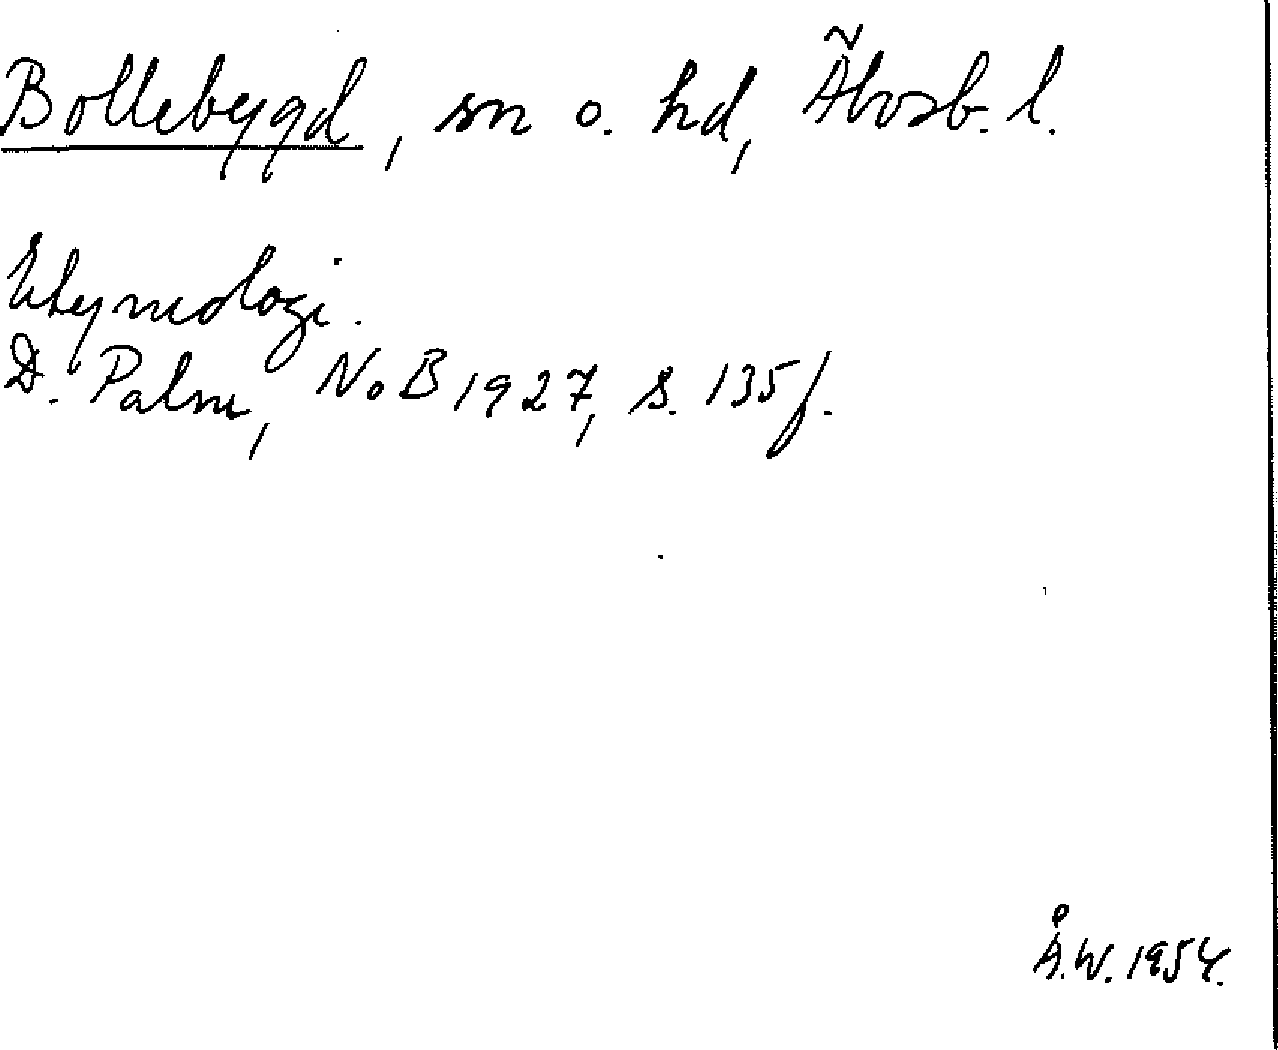 Bollebygd, sn o. hd, Älvsb. l.
Etymologi.
D. Palm, NoB 1927, s. 135 f.
Å.W. 1954.